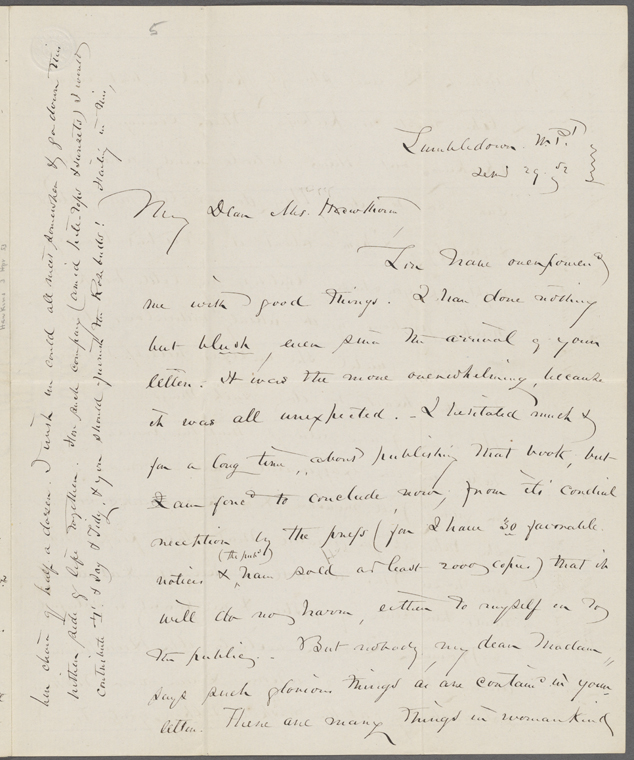 5
Tumbledown Mt.
29. 52
My Dear Mrs. Hawthorne,
You have overpowered
me with good things. I have done nothing
but blush, ever since the arrival of your
letter. It was the more overwhelming, because
it was all unexpected. - I hesitated much &
for a long time, about publishing that book, but
I am forced to conclude now, from its cordial
reception by the press (for I have 30 favorable
notices & (the pub.) have sold at least 2000 copies) that it
will do no harm, either to myself or to
the public. - But nobody, my dear Madam,
says such glorious things as are contained in your
letter. There are many things in womankind
her choir of half a dozen. I wish we could all meet somewhere & go down this
hither side of life together. For such company (amid hilltops & sunsets) I would
contribute & Day & Tidy, & you should furnish the Rosebuds! Halting in this,